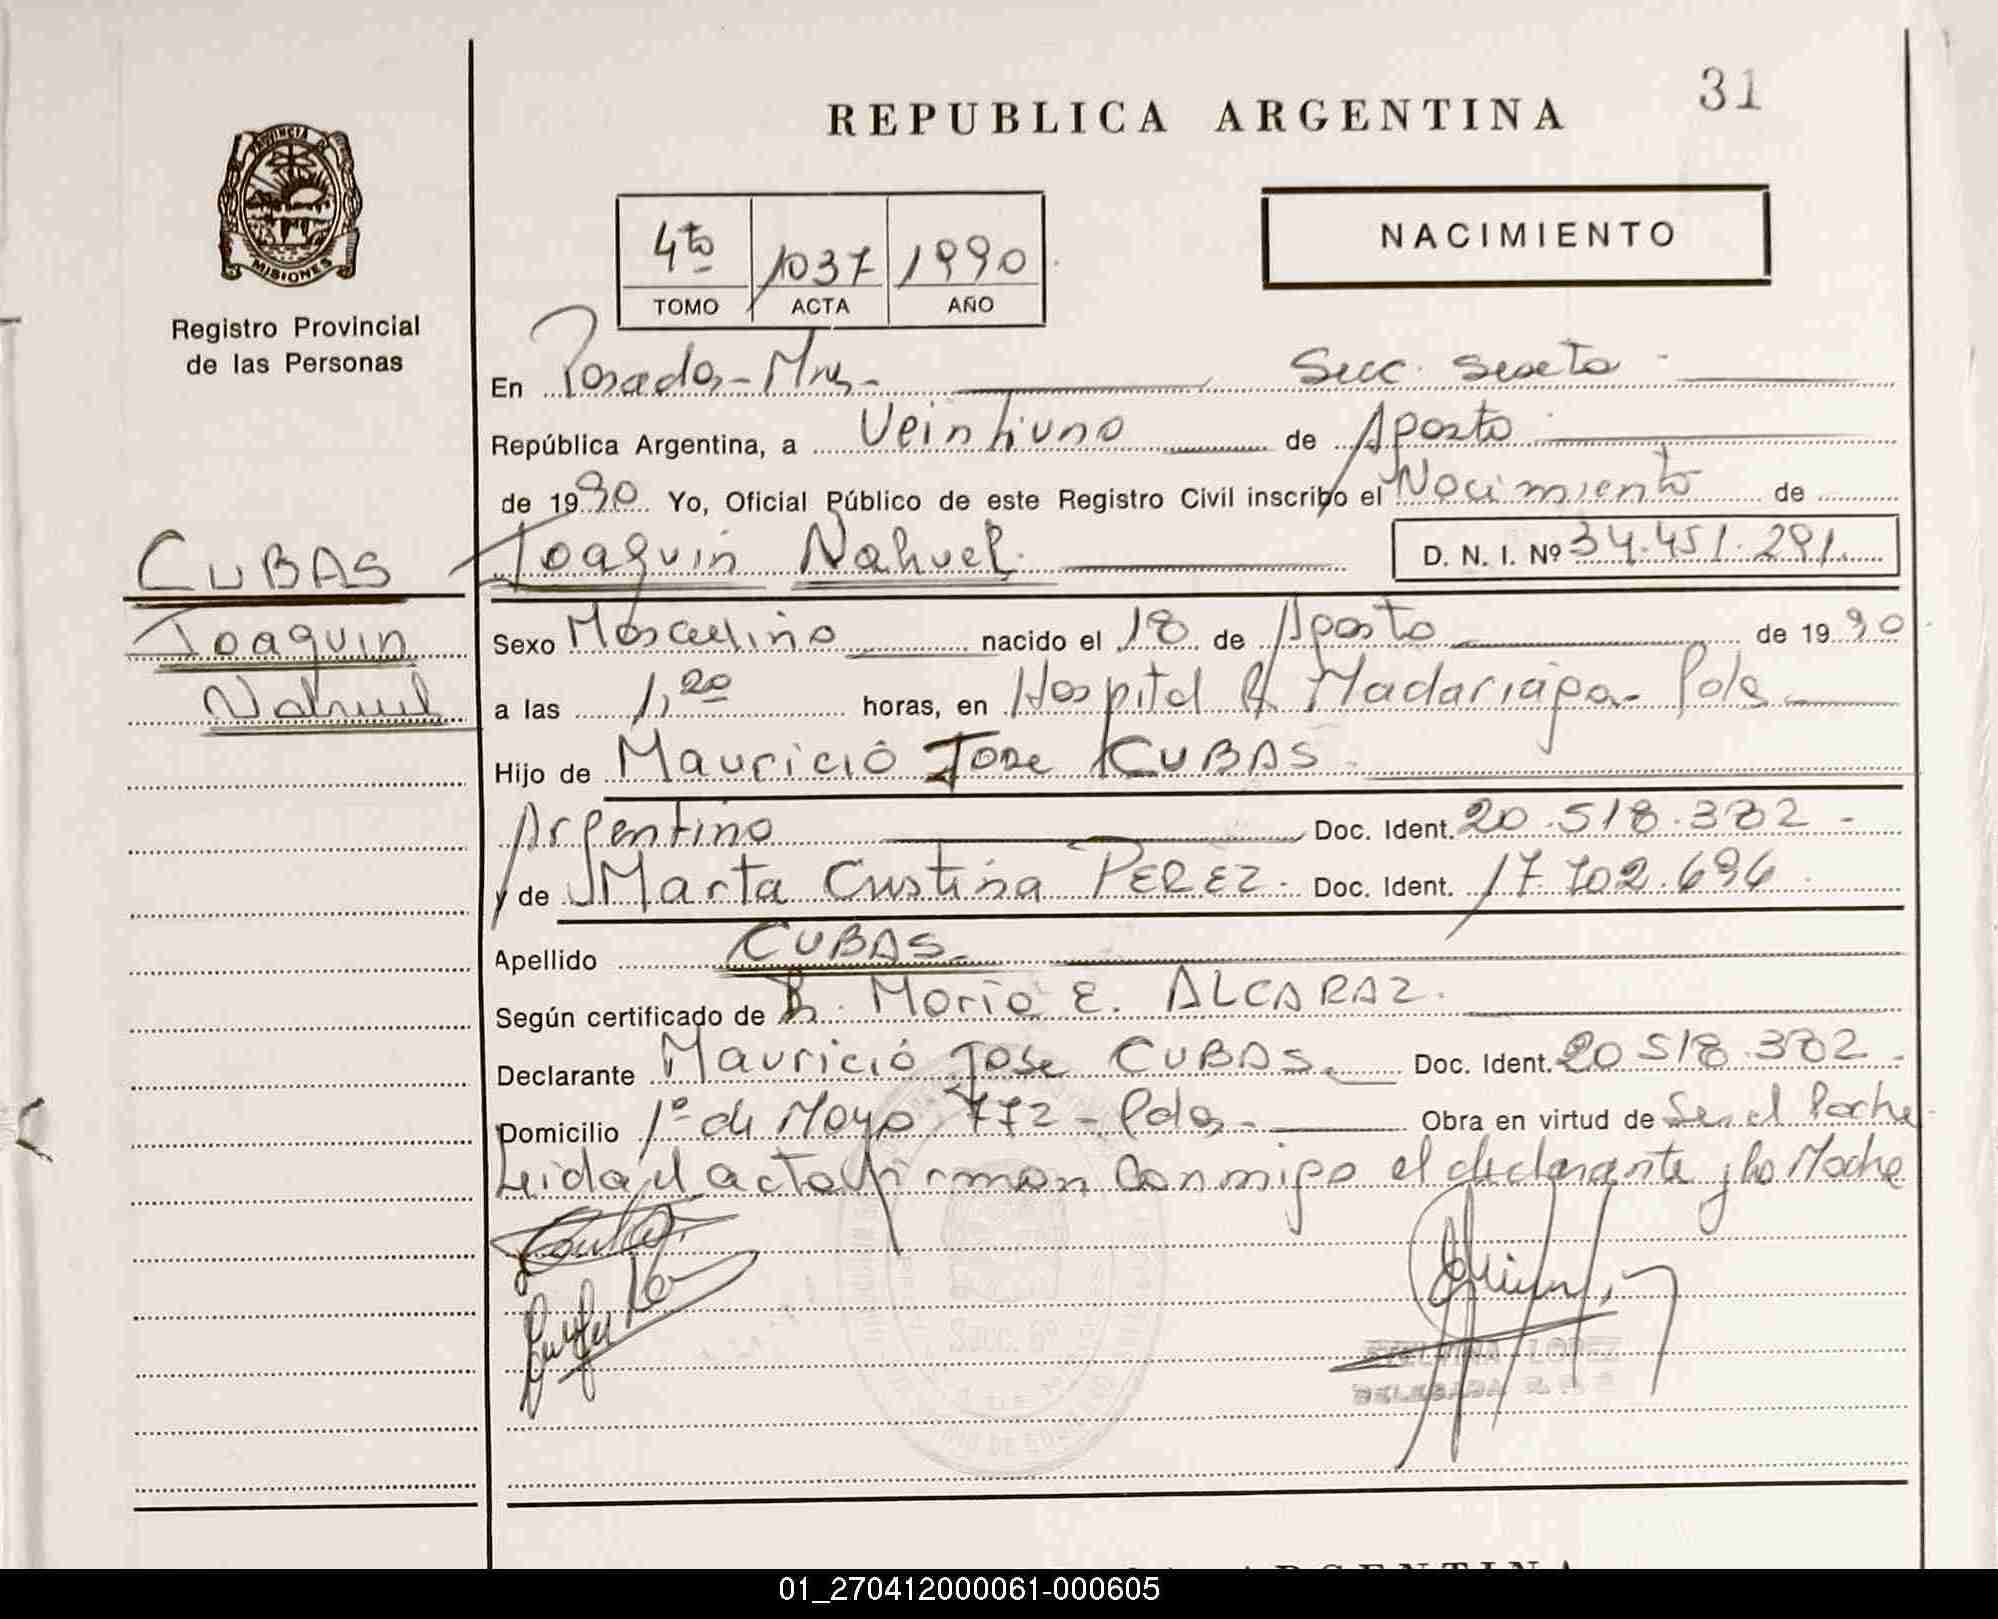 31
REPUBLICA ARGENTINA
PROVINCIA DE
MISIONES
Registro Provincial
de las Personas
NACIMIENTO
4to 1037 1990
TOMO ACTA AÑO
En Posadas - Mns - Secc. Sexta
República Argentina, a Veintiuno de Agosto
de 1990 Yo, Oficial Público de este Registro Civil inscribo el Nacimiento de
Joaquin Nahuel. D. N. I. Nº 34.451.291
CUBAS
Joaquin
Nahuel
Sexo Masculino nacido el 18 de Agosto de 1990
a las 1,20 horas, en Hospital R Madariaga - Pdas
Hijo de Mauricio Jose CUBAS
Argentino Doc. Ident. 20.518.382 -
y de Marta Cristina PEREZ - Doc. Ident. 17.702.696
Apellido CUBAS -
Según certificado de Dr. Mario E. ALCARAZ.
Declarante Mauricio Jose CUBAS. Doc. Ident. 20 518.382 -
Domicilio 1º de Mayo 772 - Pdas - Obra en virtud de Ser el Padre
Leida el acta firman conmigo el declarante y la Madre
Secc. 6º
LOPEZ
DELEGADA
ARGENTINA
01_270412000061-000605